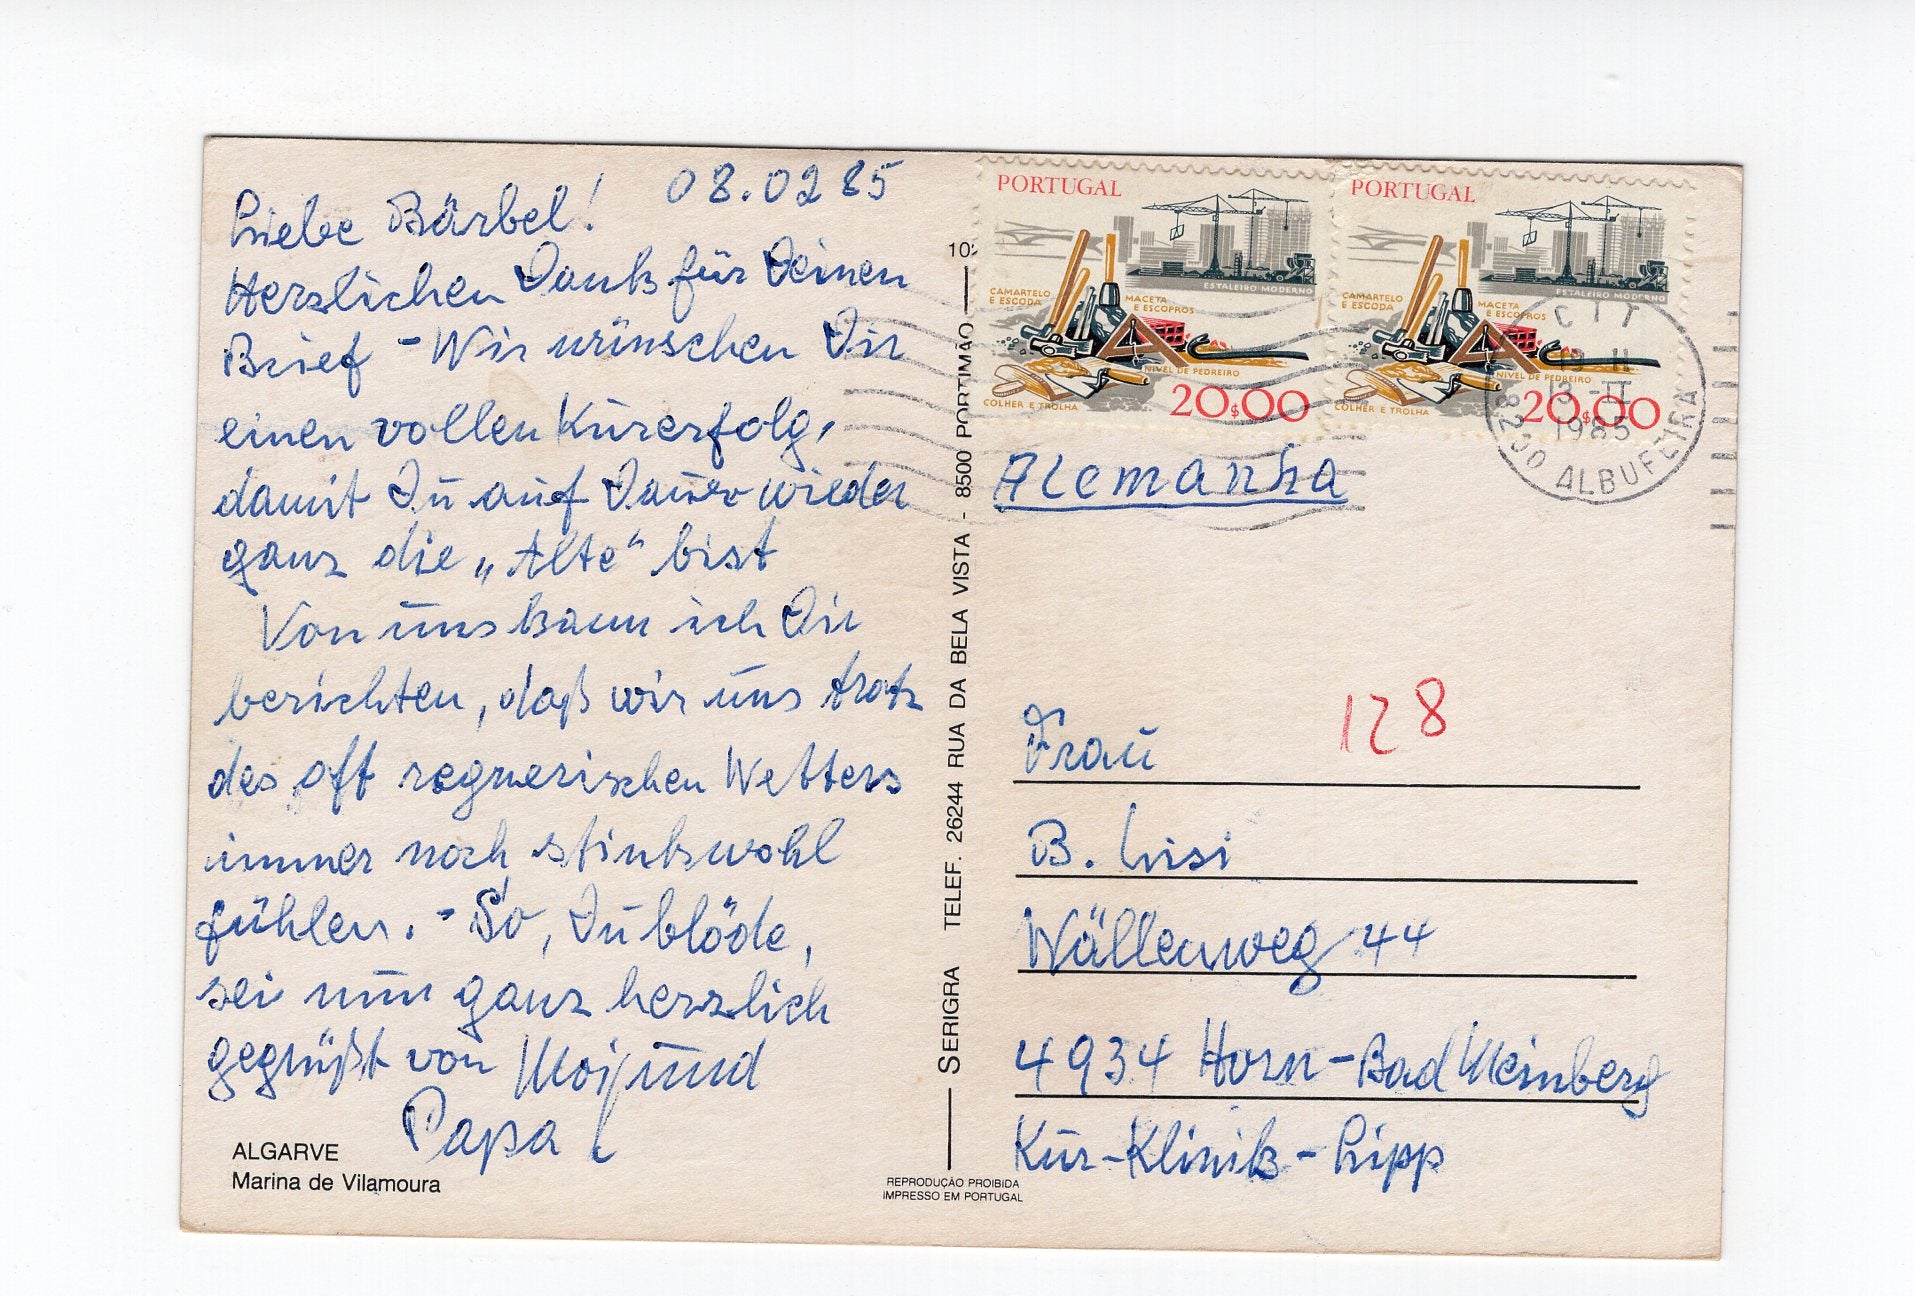 08.02 85
Liebe Bärbel!
Herzlichen Dank für Deinen
Brief - Wir wünschen Dir
einen vollen Kurerfolg,
damit Du auf Dauer wieder
ganz die „Alte“ bist
Von uns kann ich Dir
berichten, daß wir uns trotz
des oft regnerischen Wetters
immer noch stinkwohl
fühlen. - So, Du blöde,
sei nun ganz herzlich
gegrüßt von und
Papa
ALGARVE
Marina de Vilamoura
SERIGRA TELEF. 26244 RUA DA BELA VISTA - 8500 PORTIMÃO
10
REPRODUÇÃO PROIBIDA
IMPRESSO EM PORTUGAL
PORTUGAL
ESTALEIRO MODERNO
CAMARTELO
E ESCODA
MACETA
E ESCOPROS
NIVEL DE PEDREIRO
COLHER E TROLHA
20$00
PORTUGAL
ESTALEIRO MODERNO
CAMARTELO
E ESCODA
MACETA
E ESCOPROS
NIVEL DE PEDREIRO
COLHER E TROLHA
20$00
CIT
13 -II
1985
8200 ALBUFEIRA
Alemanha
128
Frau
B. Lisi
Wällenweg 44
4934 Horn-Bad Meinberg
Kur-Klinik-Lipp